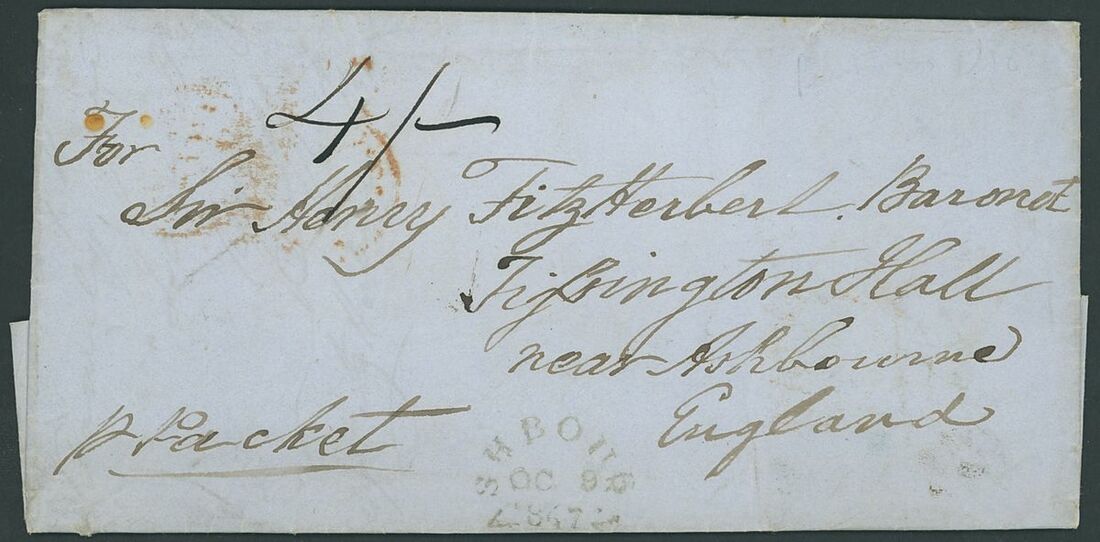 4/-
For
Sir Henry FitzHerbert. Baronet
Tiſsington Hall
near Ashbourne
England
p Packet
SHBO
OC 9